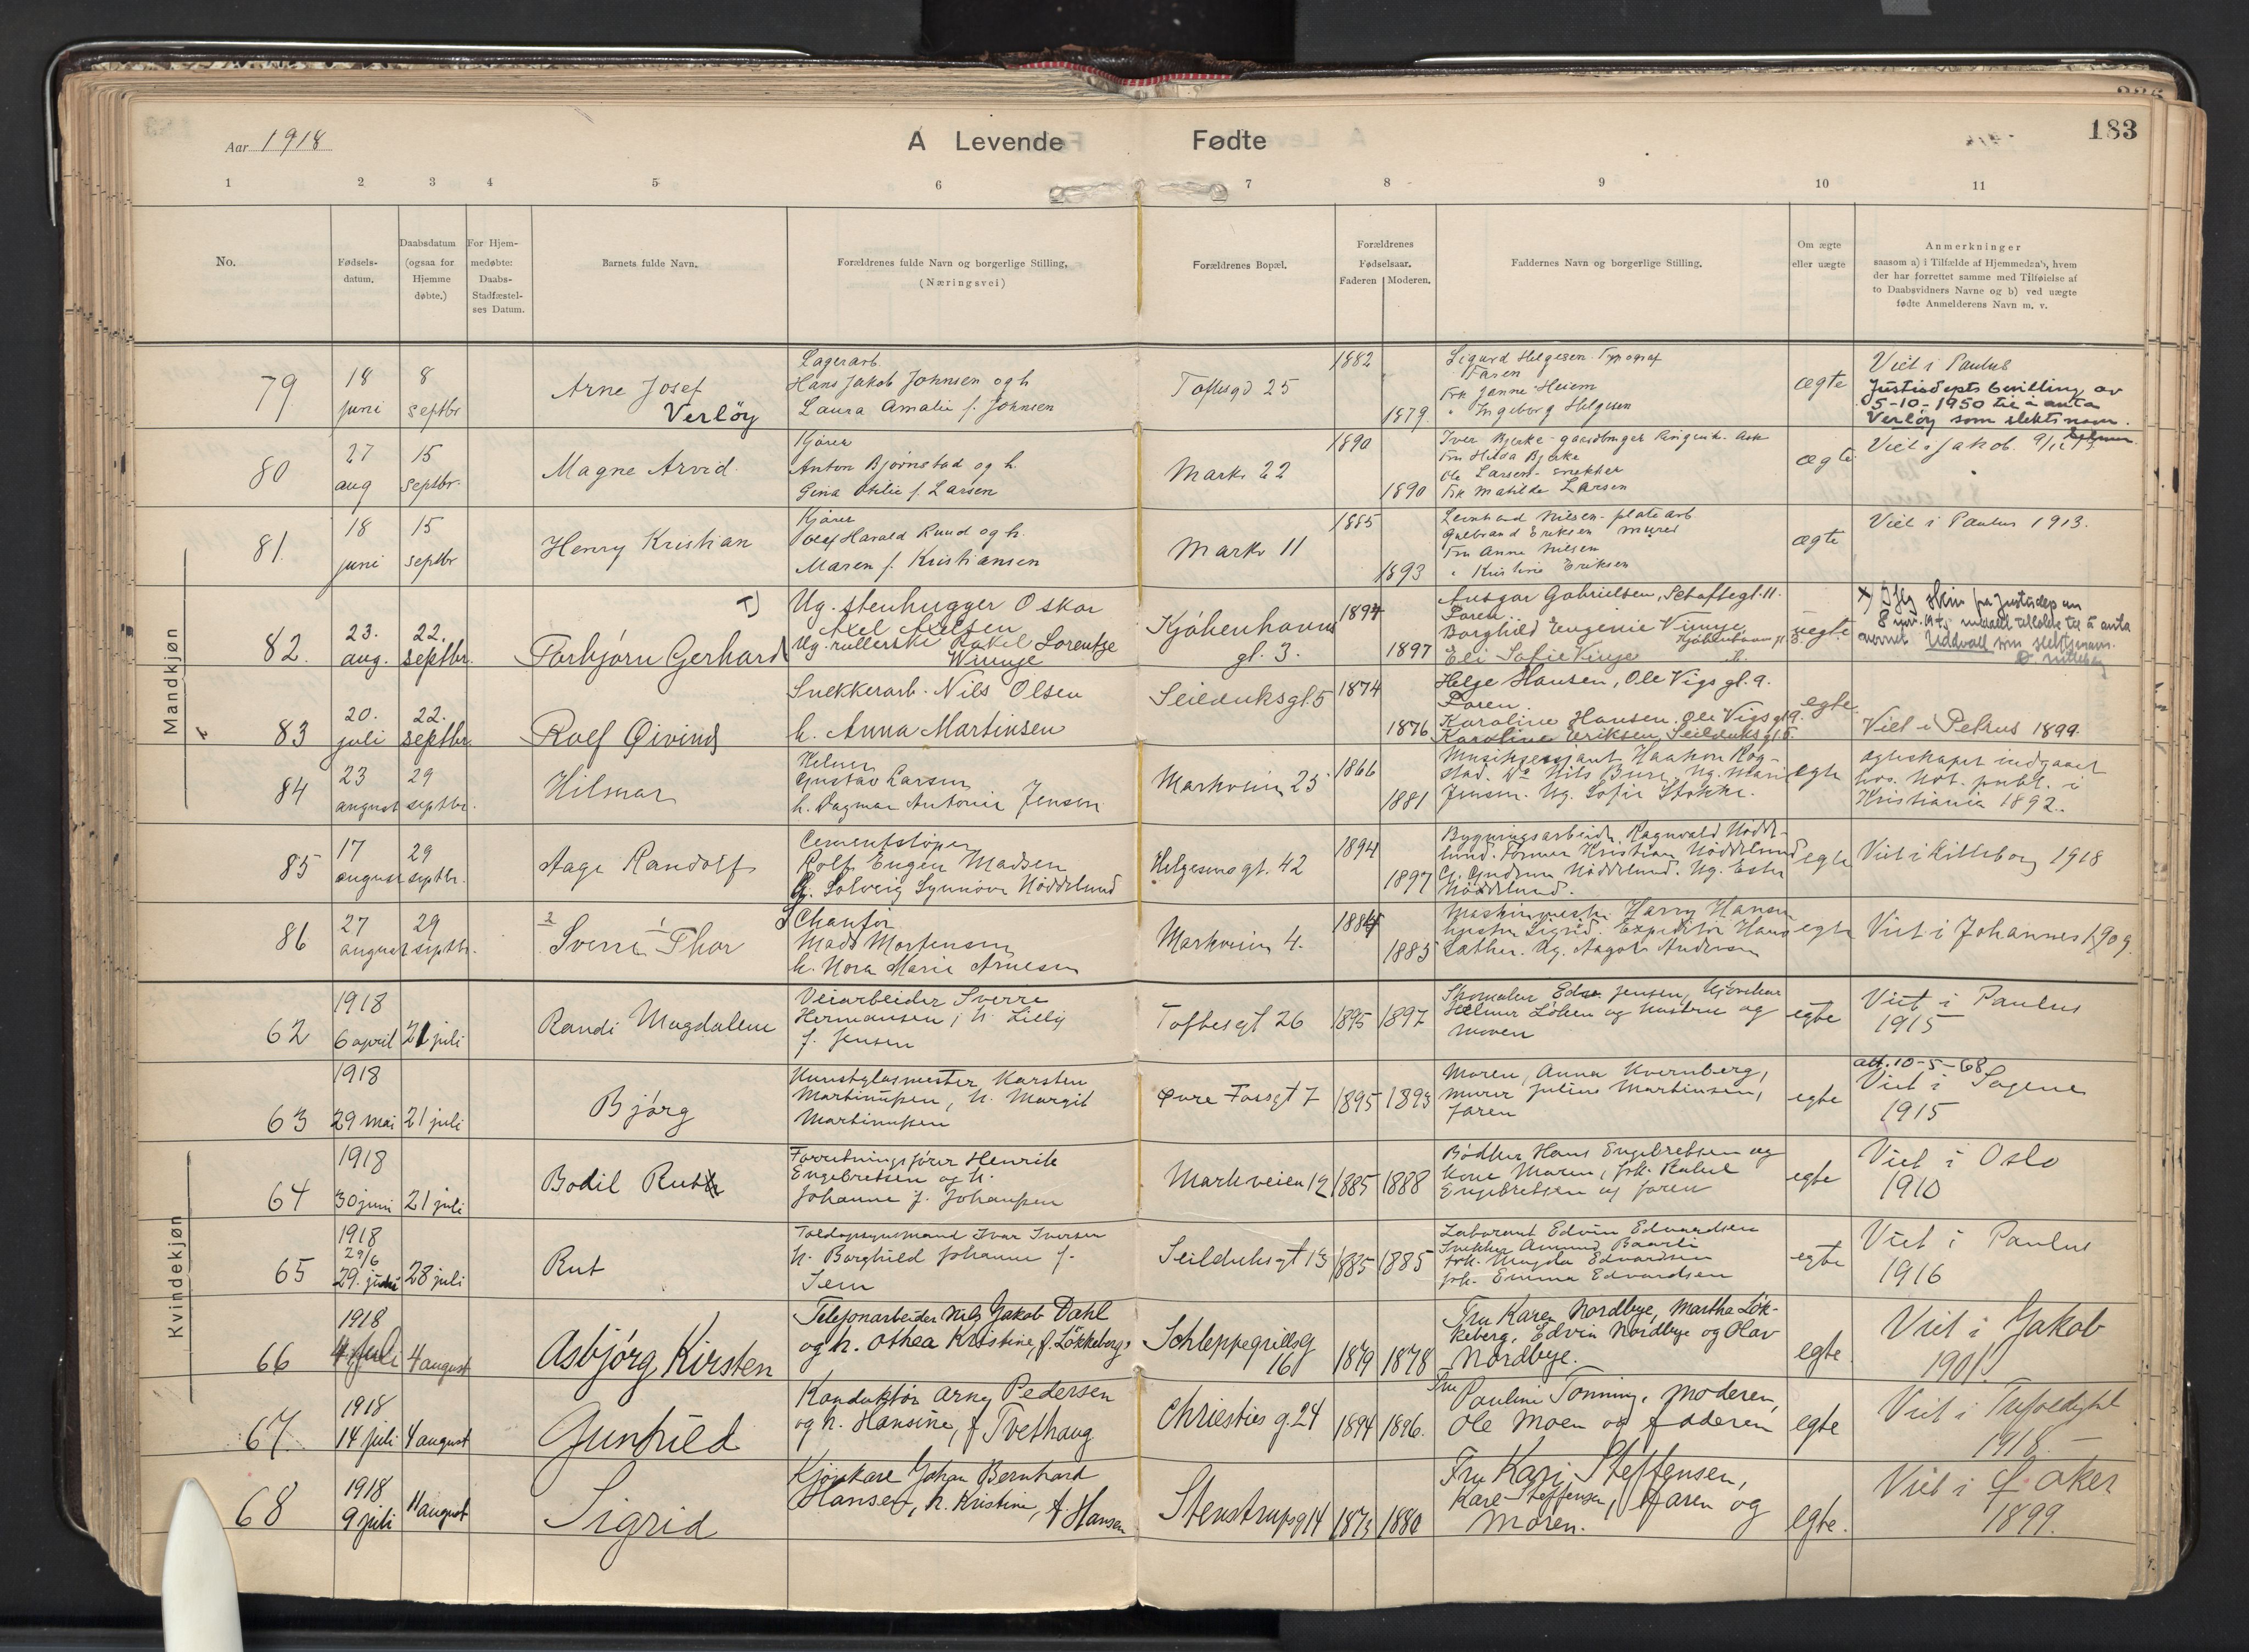 183
Aar 1918
A Levende Fødte
1 2 3 4 5 6 7 8 9 10 11
No.
Fødsels-
datum.
Daabsdatum
(ogsaa for
Hjemme
døbte.)
For Hjem-
medøbte:
Daabs-
Stadfæstel-
ses Datum.
Barnets fulde Navn.
Forældrenes fulde Navn og borgerlige Stilling.
(Næringsvei)
Forældrenes Bopæl.
Forældrenes
Fødselsaar.
Faderen Moderen.
Faddernes Navn og borgerlige Stilling.
Om ægte
eller uægte
Anmerkninger
saasom a) i Tilfælde af Hjemmedaab, hvem
der har forrettet samme med Tilføielse af
to Daabsvidners Navne og b) ved uægte
fødte Anmelderens Navn m. v.
Mandkjøn
79
18
juni
8
septbr
Arne Josef
Verløy
Lagerarb.
Hans Jakob Johnsen og h
Laura Amalie f. Johnsen
Toftesgd 25
1882
1879
Sigurd Helgesen Typograf
Faren
Frk Janne Heiem
" Ingeborg Helgesen
ægte
Viet i Paulus
Justisdepts bevilling av
5-10-1950 til å anta
Verløy som slektsnavn.
80
27
aug
15
septbr.
Magne Arvid.
Kjører
Anton Bjørnstad og h.
Gina Otilie f. Larsen
Markv 22
1890
1890
Iver Bjerke - gaardbruger Ask
Fru Hilda Bjerke
Ole Larsen - snekker
Frk Matilde Larsen
ægte
Viet i Jakob.
81.
18
juni
15
septbr
Henry Kristian
Kjører
Olaf Harald Ruud og h.
Maren f. Kristiansen
Markv 11
1885
1893
Leonhard Nilsen - platearb
Gulbrand Eriksen murer
Fru Anne Nilsen
" Kristine Eriksen
ægte
Viet i Paulus 1913.
82.
23.
aug.
22.
septbr.
Torbjørn Gerhard
Ug. stenhugger Oskar
Axel Axelsen
Ug. rullerske Rakel Lorentze
Winnje
Kjøbenhavns
gt. 3.
1894
1897
Ansgar Gabrielsen, gt. 11.
Faren.
Borghild Eugenie
Eli Sofie
uegte
som slektsnavn.
83
20.
juli
22.
septbr.
Rolf Øivind
Snekkerarb. Nils Olsen
h. Anna Martinsen
Seilduksgt. 5
1874
1876
Helge Hansen, Ole Vigs gt. 9.
Faren.
Karoline Hansen. Ole Vigs gt 9.
Karoline Eriksen, Seilduksgt 5.
egte
Viet i Petrus 1899.
84
23
august
29
septbr.
Hilmar
Kelner
Gustav Larsen
h. Dagmar Antonie Jensen
Markveien 25
1866
1881
Musiksersjant Haakon Røg-
stad. Nils Buer, Ug. Marie
Jensen. Ug. Sofie Stokke.
egte
Ægteskapet indgaaet
hos Not. publ. i
Kristiania 1892.
85
17
august
29
septbr.
Aage Randolf
Cementstøper
Rolf Eugen Madsen
h. Solveig Synnøve Nøddelund
Helgesensgt. 42
1894
1897
Bygningsarbeid. Ragnvald Nødde-
lund. Former Kristian Nøddelund
G. Gudrun Nøddelund. Ug. Ester
Nøddelund.
egte
Viet i Lilleborg 1918
86
27
august
29
septbr.
2 1
Sverre Thor
Chauffør
Mads Mortensen
h. Nora Marie Arnesen
Markveien 4.
1884
1885
Maskinmester Harry Hansen
hustru Sigrid. Expeditør Hans
Sather. Ug. Aagot Andersen
egte
Viet i Johannes 1909.
Kvindekjøn
62
1918
6 april
21 juli
Randi Magdalene
Veiarbeider Sverre
Hermansen, h. Lilly
f. Jensen
Toftesgt 26
1895
1897
Skomaker Edv. Jensen,
Helmer Løken og hustru og
moren
egte
Viet i Paulus
1915
63
1918
29 mai
21 juli
Bjørg
Kunstglasmester Karsten
Martinussen, h. Margit
Martinussen
Øvre Fossgt 7
1895
1893
Moren, Anna Kvernberg,
murer Julius Martinsen,
faren
egte
att. 10-5-68
Viet i Sagene
1915
64
1918
30 juni
21 juli
Bodil Rut
Forretningsfører Henrik
Engebretsen og h.
Johanne f. Johanssen
Markveien 12
1885
1888
Bødker Hans Engebretsen og
kone Maren, frk. Rakel
Engebretsen og faren
egte
Viet i Oslo
1910
65
1918
29/6
29. juni
28 juli
Rut
Toldopsynsmand Ivar Iversen
h. Borghild Johanne f.
Iem
Seilduksgt 13
1885
1885
Laborant Edvin Edvardsen
Snekker Amund Baarli
frk. Magda Edvardsen
frk. Emma Edvardsen
egte
Viet i Paulus
1916
66
1918
4 juli
4 august
Asbjørg Kirsten
Telefonarbeider Nils Jakob Dahl
og h. Othea Kristine, f. Løkkeberg
Schleppegrellsg
16
1879
1878
Fru Karen Nordbye, Martha Løk-
keberg, Edvin Nordbye og Olav
Nordbye.
egte
Viet i Jakob
1901.
67
1918
14 juli
4 august
Gunhild
Konduktør Arne Pedersen
og h. Hansine, f Tvethaug
Christies g. 24
1894
1896.
Fru Pauline Tønning, moderen,
Ole Moen og faderen
egte
Viet i Trefoldighet
1918. -
68
1918
9 juli
11 august
Sigrid
Kjørekarl Johan Bernhard
Hansen, h. Kristine, f. Hansen
Stenstrupsg 14
1873
1880
Fru Kari Steffensen,
Kare Steffensen, faren og
moren.
egte.
Viet i Ø. Aker
1899.